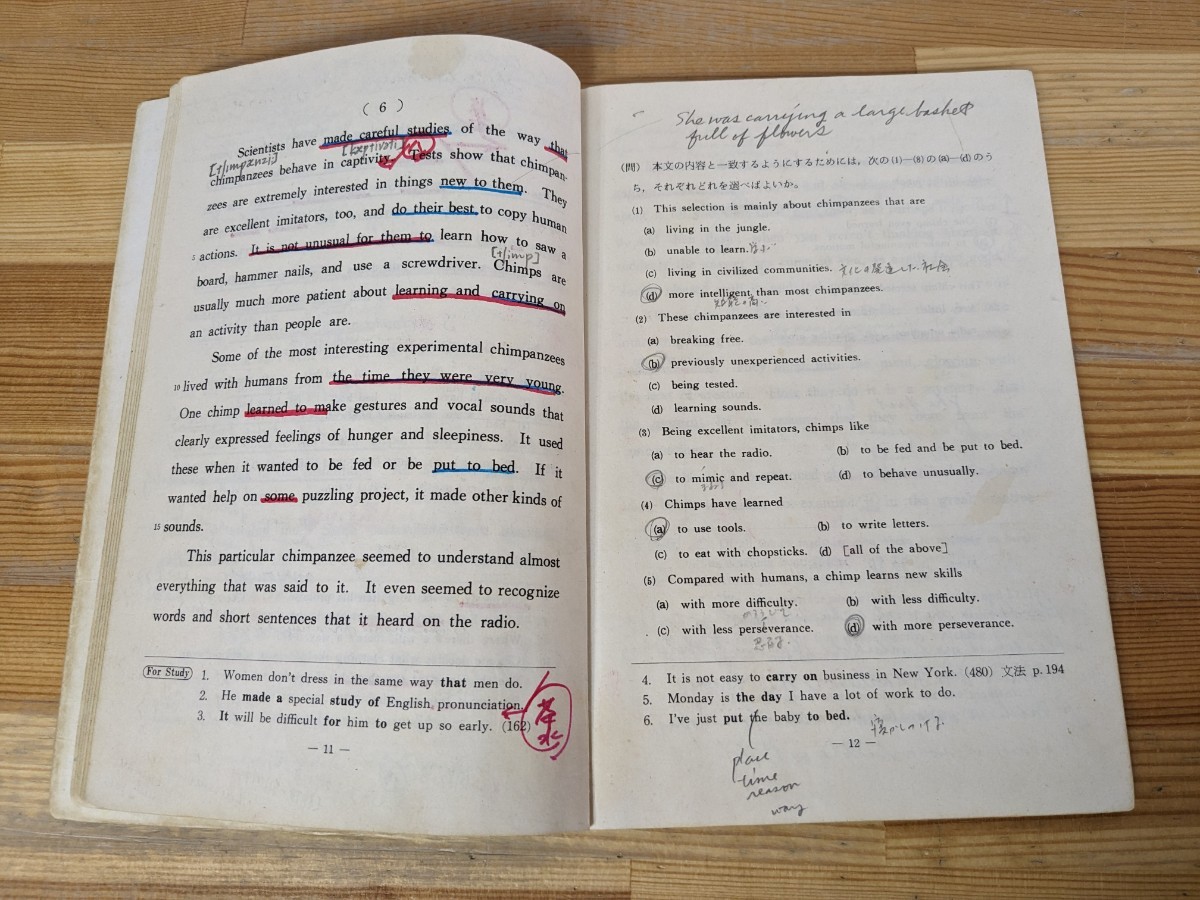 ( 6 )
Scientists have made careful studies of the way that
[tʃimpænzi:]
chimpanzees behave in captivity. Tests show that chimpan-
zees are extremely interested in things new to them. They
are excellent imitators, too, and do their best to copy human
5 actions. It is not unusual for them to learn how to saw a
[tʃimp]
board, hammer nails, and use a screwdriver. Chimps are
usually much more patient about learning and carrying on
an activity than people are.
Some of the most interesting experimental chimpanzees
10 lived with humans from the time they were very young.
One chimp learned to make gestures and vocal sounds that
clearly expressed feelings of hunger and sleepiness. It used
these when it wanted to be fed or be put to bed. If it
wanted help on some puzzling project, it made other kinds of
15 sounds.
This particular chimpanzee seemed to understand almost
everything that was said to it. It even seemed to recognize
words and short sentences that it heard on the radio.
For Study 1. Women don't dress in the same way that men do.
2. He made a special study of English pronunciation.
3. It will be difficult for him to get up so early. (162)
— 11 —
She was carrying a large basket
full of flowers
(問) 本文の内容と一致するようにするためには, 次の(1)—(8)の(a)—(d)のう
ち, それぞれどれを選べばよいか。
(1) This selection is mainly about chimpanzees that are
(a) living in the jungle.
(b) unable to learn.
(c) living in civilized communities. 文化の発達した社会
(d) more intelligent than most chimpanzees.
(2) These chimpanzees are interested in
(a) breaking free.
(b) previously unexperienced activities.
(c) being tested.
(d) learning sounds.
(3) Being excellent imitators, chimps like
(a) to hear the radio. (b) to be fed and be put to bed.
(c) to mimic and repeat. (d) to behave unusually.
(4) Chimps have learned
(a) to use tools. (b) to write letters.
(c) to eat with chopsticks. (d) [all of the above]
(5) Compared with humans, a chimp learns new skills
(a) with more difficulty. (b) with less difficulty.
(c) with less perseverance. (d) with more perseverance.
4. It is not easy to carry on business in New York. (480) 文法 p.194
5. Monday is the day I have a lot of work to do.
6. I've just put the baby to bed.
— 12 —
place
time
reason
way